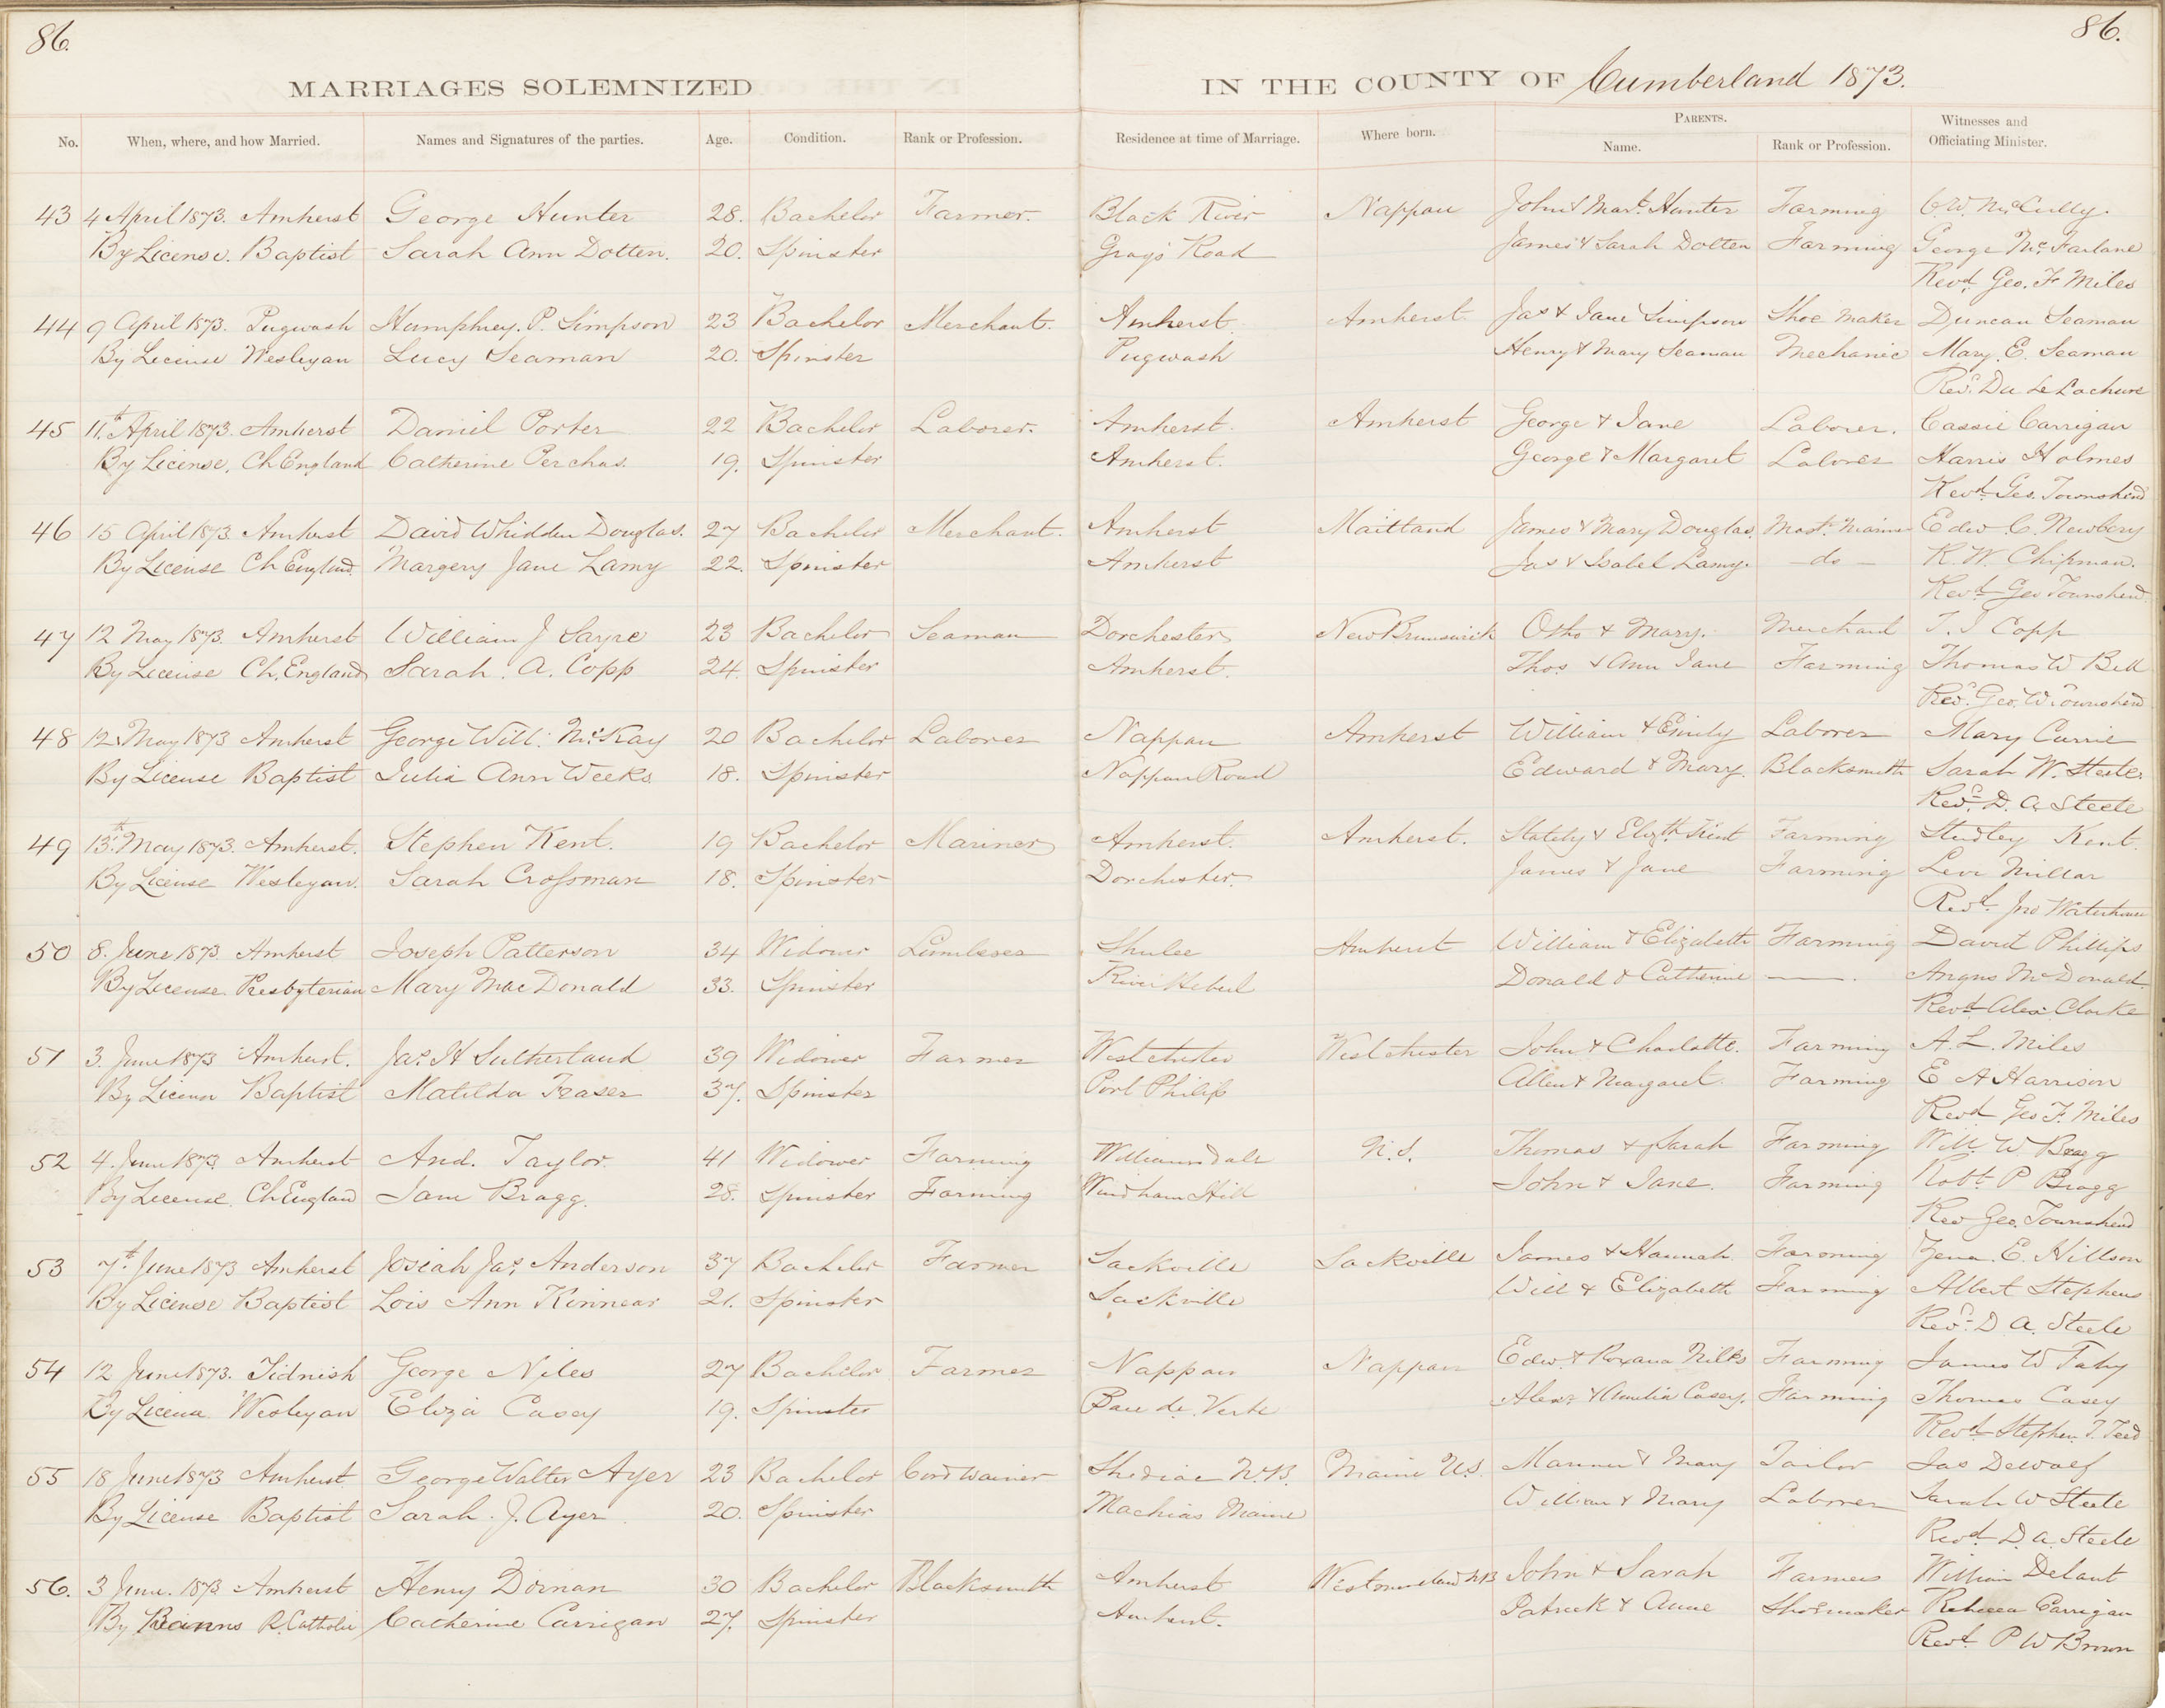 86.
86.
MARRIAGES SOLEMNIZED
IN THE COUNTY OF Cumberland 1873.
No. When, where, and how Married. Names and Signatures of the parties. Age. Condition. Rank or Profession. Residence at time of Marriage. Where born. PARENTS. Name. Rank or Profession. Witnesses and Officiating Minister.
43 4 April 1873. Amherst George Hunter 28. Bachelor Farmer. Black River Nappan John & Mart. Hunter Farming C. W. McCully.
By License. Baptist Sarah Ann Dotten. 20. Spinster Grays Road James & Sarah Dotten Farming George McFarlane
Revd. Geo. F Miles
44 9 April 1873. Pugwash Humphrey. P. Simpson 23 Bachelor Merchant. Amherst. Amherst Jas & Jane Simpson Shoe Maker Duncan Seaman
By License Wesleyan Lucy Seaman 20. Spinster Pugwash Henry & Mary Seaman Mechanic Mary. E. Seaman
Revd. De Le
45 11th April 1873. Amherst Daniel Porter 22 Bachelor Laborer. Amherst. Amherst George & Jane Laborer. Cassie Carrigan
By License. Ch England Catherine Perchas. 19. Spinster Amherst. George & Margaret Laborer Harris Holmes
Revd. Geo. Townshend
46 15 April 1873 Amherst David Whidden Douglas. 27 Bachelor Merchant. Amherst Maitland James & Mary Douglas. Mastr. Mariner Edw. C. Newbery
By License Ch England. Margery Jane Lamy 22. Spinster Amherst Jas & Isabel Lamy. - do - R. W. Chipman.
Revd. Geo Townshend.
47 12 May 1873. Amherst William J Sayre 23 Bachelor Seaman Dorchester New Brunswick Otho & Mary. Merchant T. J Copp
By License Ch. England Sarah. A. Copp 24. Spinster Amherst. Thos. & Ann Jane Farming Thomas W Bell
Revd. Geo. W Townshend
48 12 May 1873 Amherst George Will: McKay 20 Bachelor Laborer Nappan Amherst William & Emily Laborer Mary Currie
By License Baptist Julia Ann Weeks 18. Spinster Nappan Road Edward & Mary. Blacksmith Sarah W. Steele
Revd. D. A. Steele
49 13th May 1873. Amherst. Stephen Kent. 19 Bachelor Mariner Amherst. Amherst. & Elizth. Kent Farming Studley Kent.
By License Wesleyan. Sarah Crossman 18. Spinster Dorchester. James & Jane Farming Levi Millar
Revd. Jno Waterhouse
50 8. June 1873. Amherst Joseph Patterson 34 Widower Lumberer Shulee Amherst William & Elizabeth Farming David Phillips
By License. Presbyterian Mary MacDonald 33. Spinster River Hebert Donald & Catherine —. Angus McDonald.
Revd. Alex. Clarke
51 3. June 1873 Amherst. Jas. H Sutherland 39 Widower Farmer Westchester Westchester John & Charlotte. Farming A. L. Miles
By License Baptist Matilda Fraser 37. Spinster Port Philip Allen & Margaret. Farming E A Harrison
Revd. Geo F. Miles
52 4. June 1873 Amherst And. Taylor. 41 Widower Farming Williamsdale N.S. Thomas & Sarah Farming Will. W Bragg
By License. Ch England Jane Bragg. 28. Spinster Farming Windham Hill John & Jane. Farming Robt. P Bragg
Rev Geo. Townshend
53 7th June 1873 Amherst Josiah Jas. Anderson 37 Bachelor Farmer Sackville Sackville James & Hannah. Farming E. Hillson
By License Baptist Lois Ann Kinnear 21. Spinster Sackville Will & Elizabeth Farming Albert Stephens
Revd. D A. Steele
54 12 June 1873. Tidnish George Niles 27 Bachelor Farmer Nappan Nappan Edw. & Roxana Niles Farming James W
By License Wesleyan Eliza Casey 19. Spinster Baie de Verte Alexr & Amelia Casey. Farming Thomas Casey
Revd. Stephen T. Teed
55 18 June 1873 Amherst George Walter Ayer 23 Bachelor Cordwainer Shediac N.B. Maine U.S. Mariner & Mary Tailor Jas Dewolf
By License Baptist Sarah. J. Ayer 20. Spinster Machias Maine William & Mary Laborer Sarah W Steele
Revd. D. A. Steele
56. 3 June. 1873 Amherst Henry Dornan 30 Bachelor Blacksmith Amherst Westmoreland NB John & Sarah Farmer William Delant
By Banns R. Catholic Catherine Carrigan 27. Spinster Amherst. Patrick & Anne Shoemaker Rebecca Carrigan
Revd. P W Brown